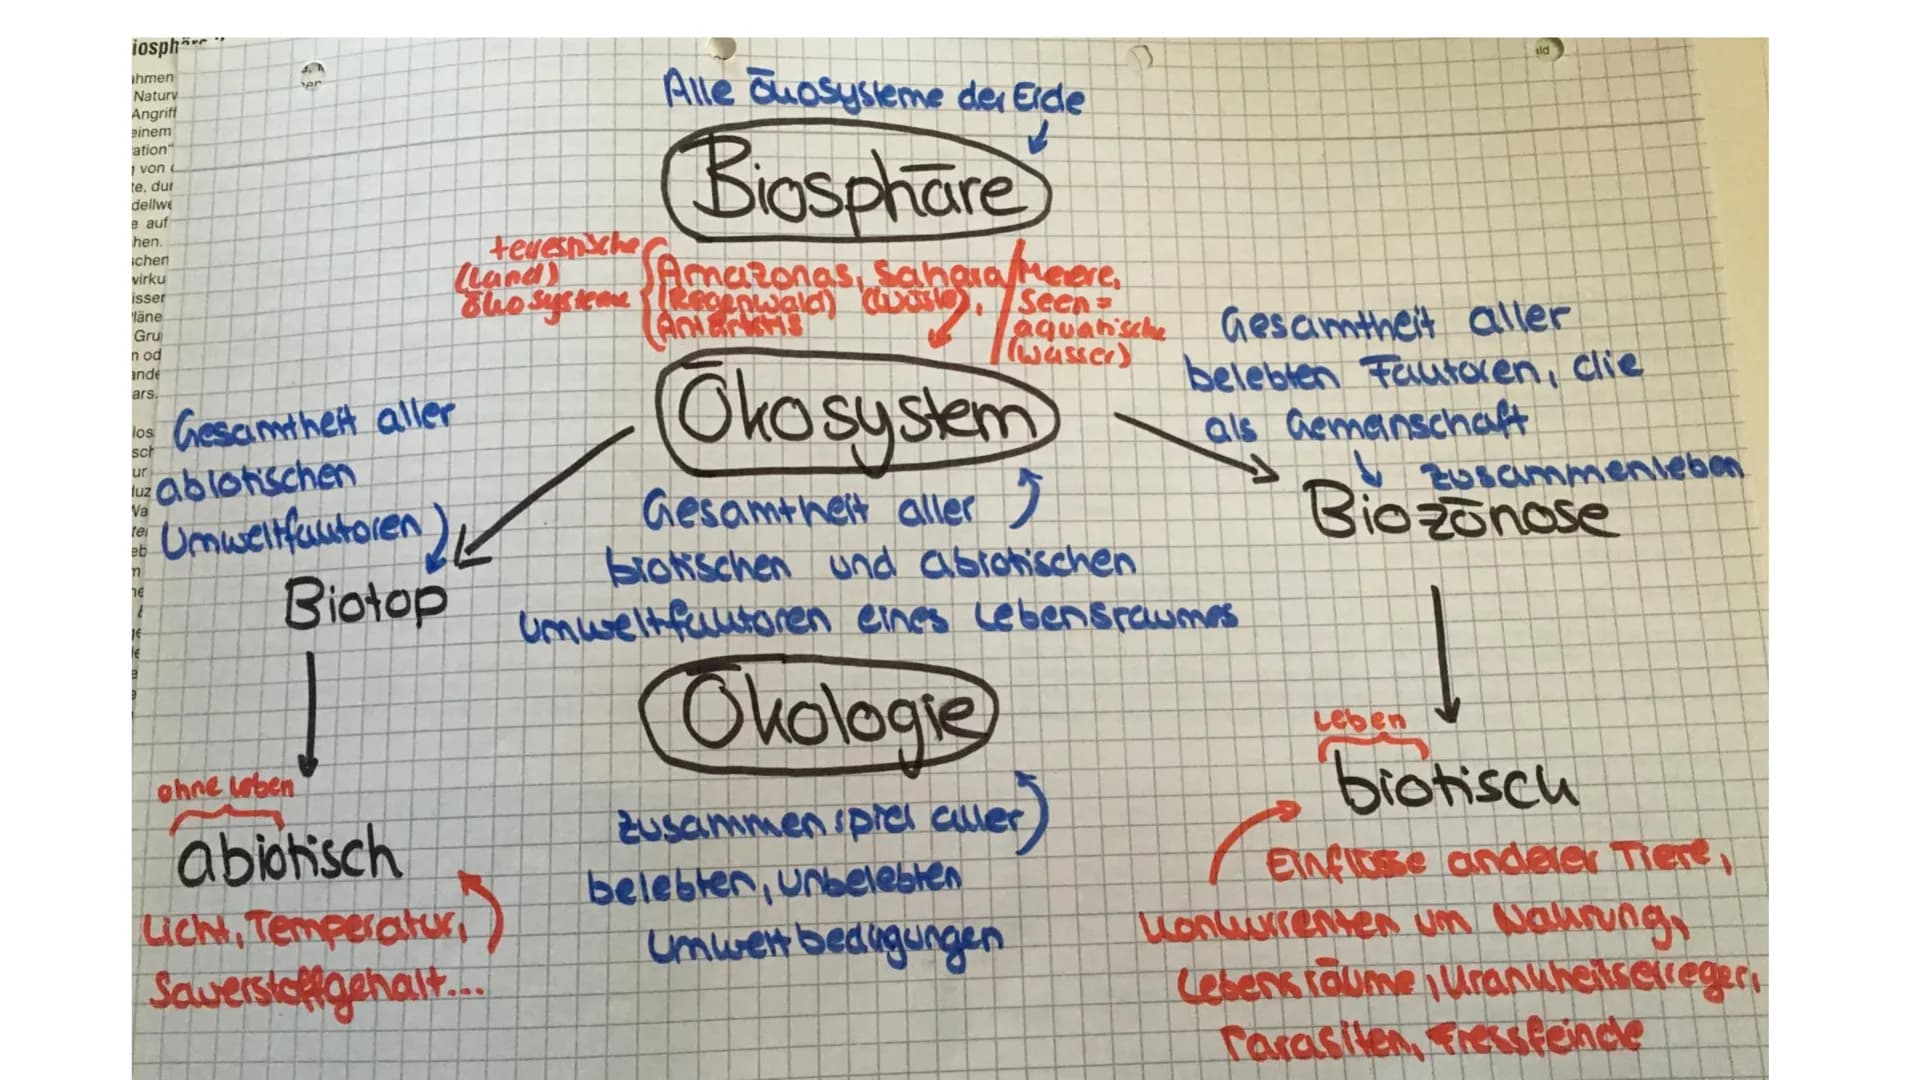 Alle Ökosysteme der Erde
Biosphäre
terrestrische
(Land)
Ökosysteme
Amazonas, Sahara
(Regenwald) (Wüste),
Antarktis
Meere,
Seen =
aquatische
(Wasser)
Ökosystem
Gesamtheit aller
biotischen und abiotischen
Umweltfaktoren eines Lebensraumes
Gesamtheit aller
abiotischen
Umweltfaktoren
Biotop
ohne Leben
abiotisch
Licht, Temperatur,
Sauerstoffgehalt...
Gesamtheit aller
belebten Faktoren, die
als Gemeinschaft
zusammenleben
Biozönose
Leben
biotisch
Einflüsse anderer Tiere,
Konkurrenten um Nahrung,
Lebensräume, Krankheitserreger,
Parasiten, Fressfeinde
Ökologie
Zusammenspiel aller
belebten, unbelebten
Umweltbedingungen